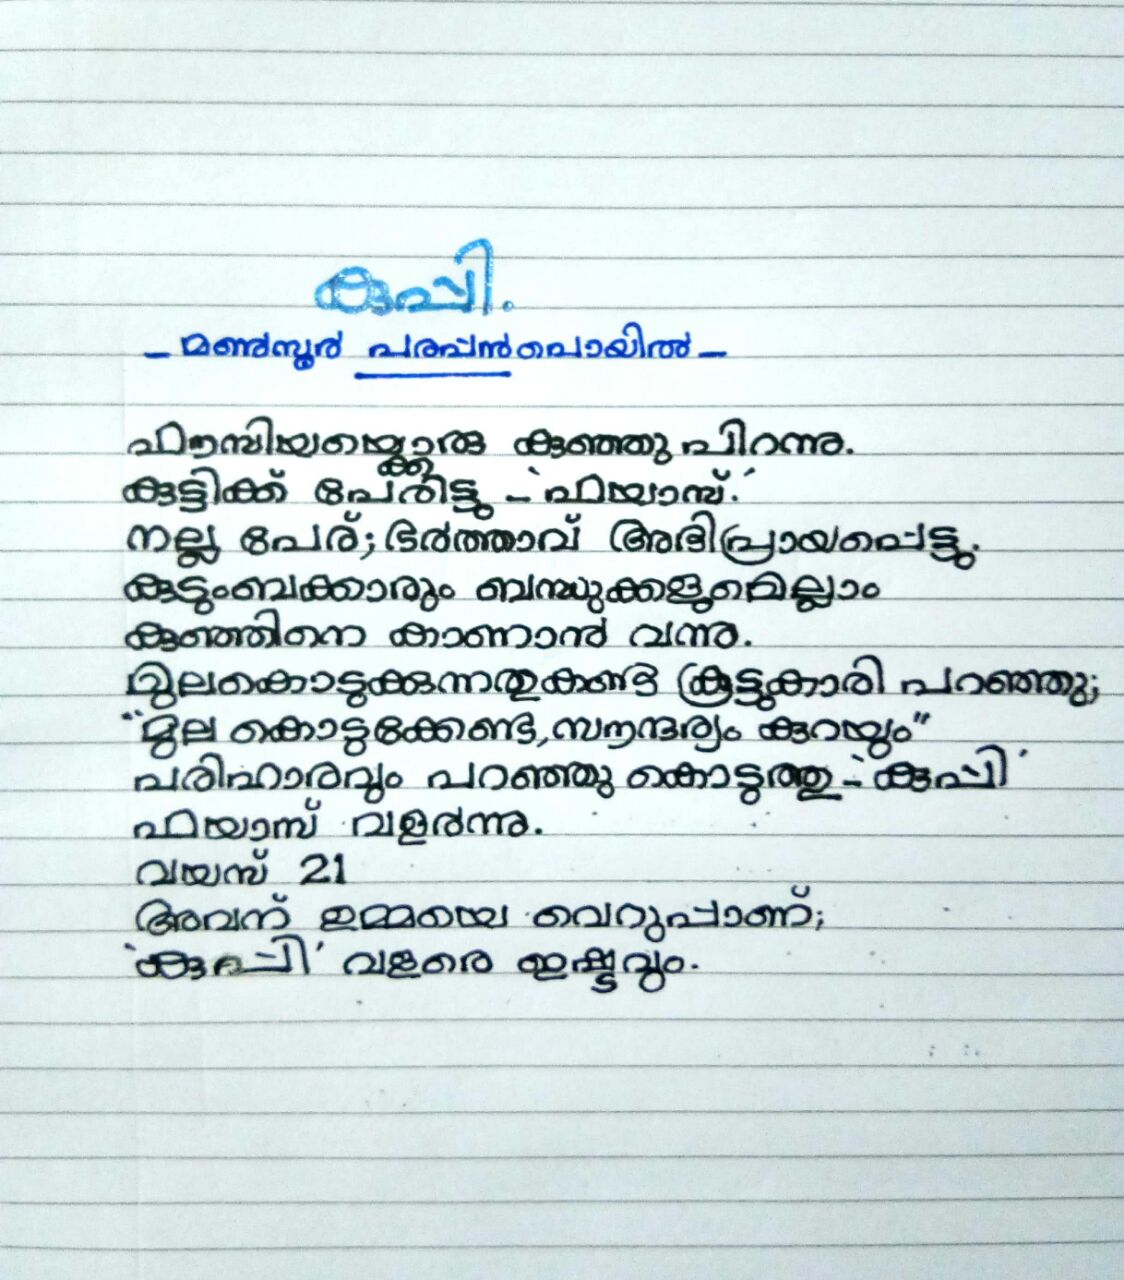 കുപ്പി.
- മൺസൂർ പരപ്പൻപൊയിൽ -
ഫൗസിയയ്ക്കൊരു കുഞ്ഞു പിറന്നു.
കുട്ടിക്ക് പേരിട്ടു - 'ഫിയാസ്.'
നല്ല പേര്; ഭർത്താവ് അഭിപ്രായപ്പെട്ടു.
കുടുംബക്കാരും ബന്ധുക്കളുമെല്ലാം
കുഞ്ഞിനെ കാണാൻ വന്നു.
മുലകൊടുക്കുന്നതുകണ്ട കൂട്ടുകാരി പറഞ്ഞു;
"മുല കൊടുക്കേണ്ട, സൗന്ദര്യം കുറയും"
പരിഹാരവും പറഞ്ഞു കൊടുത്തു - 'കുപ്പി'
ഫിയാസ് വളർന്നു.
വയസ് 21
അവന് ഉമ്മയെ വെറുപ്പാണ്;
'കുപ്പി' വളരെ ഇഷ്ടവും.